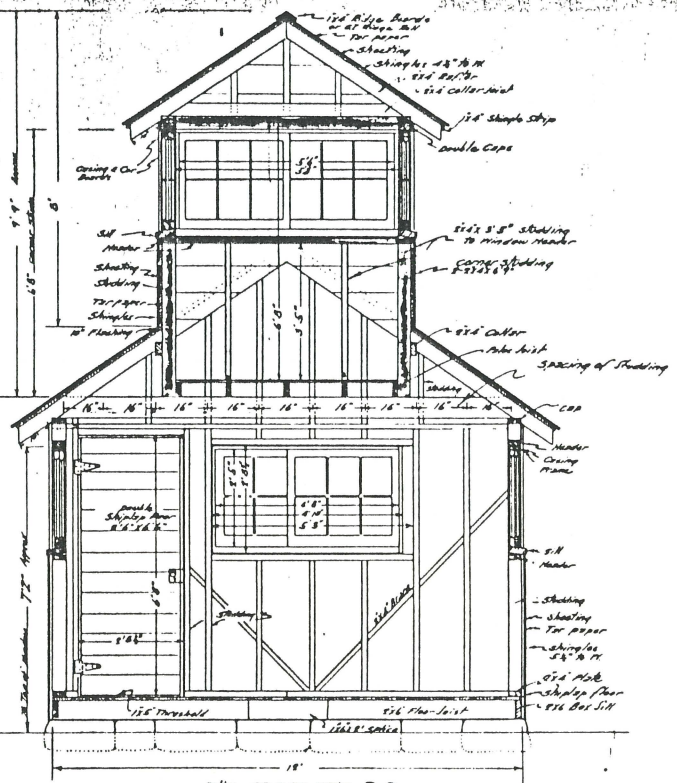 1"x6" Ridge Boards
or GI Ridge Roll
Tar paper
Sheeting
Shingles 4½" to W.
2"x4" Rafter
2"x4" Collar Joist
1"x4" Shingle Strip
Double Caps
Casing & Cor
Boards
9'9"
6'8" corner studs
8'
5'4"
Sill
Header
Sheeting
Studding
Tar paper
Shingles
10" Flashing
2"x4"x 3'5" Studding
To Window Header
Corner Studding
6'8"
3'5"
2"x4" Collar
Studding
Spacing of Studding
Cap
16" 16" 16" 16" 16" 16" 16" 16" 16"
Header
Casing
Frame
Double
Shiplap Door
2'6"x6'6"
6'8"
2'8½"
4'8"
4'10"
5'3"
7'2"
Studding
2"x4" Brace
Sill
Header
Studding
Sheeting
Tar paper
Shingles
5½" to W.
2"x4" Plate
Shiplap floor
2x6 Box Sill
1"x5" Threshold
2x6 Floor Joist
Splice
12'